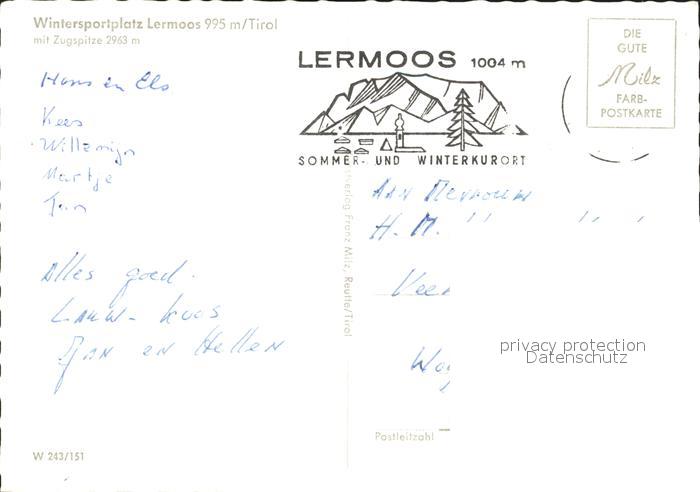 Wintersportplatz Lermoos 995 m/Tirol
mit Zugspitze 2963 m
Hans en Els
Kees
Willemijn
Martje
Jan
Alles goed.
Koos
Jan en Hellen
W 243/151
LERMOOS 1004 m
SOMMER- UND WINTERKURORT
DIE
GUTE
Milz
FARB-
POSTKARTE
Franz Milz, Reutte/Tirol
Aan Mevrouw
H. M.
privacy protection
Datenschutz
Postleitzahl